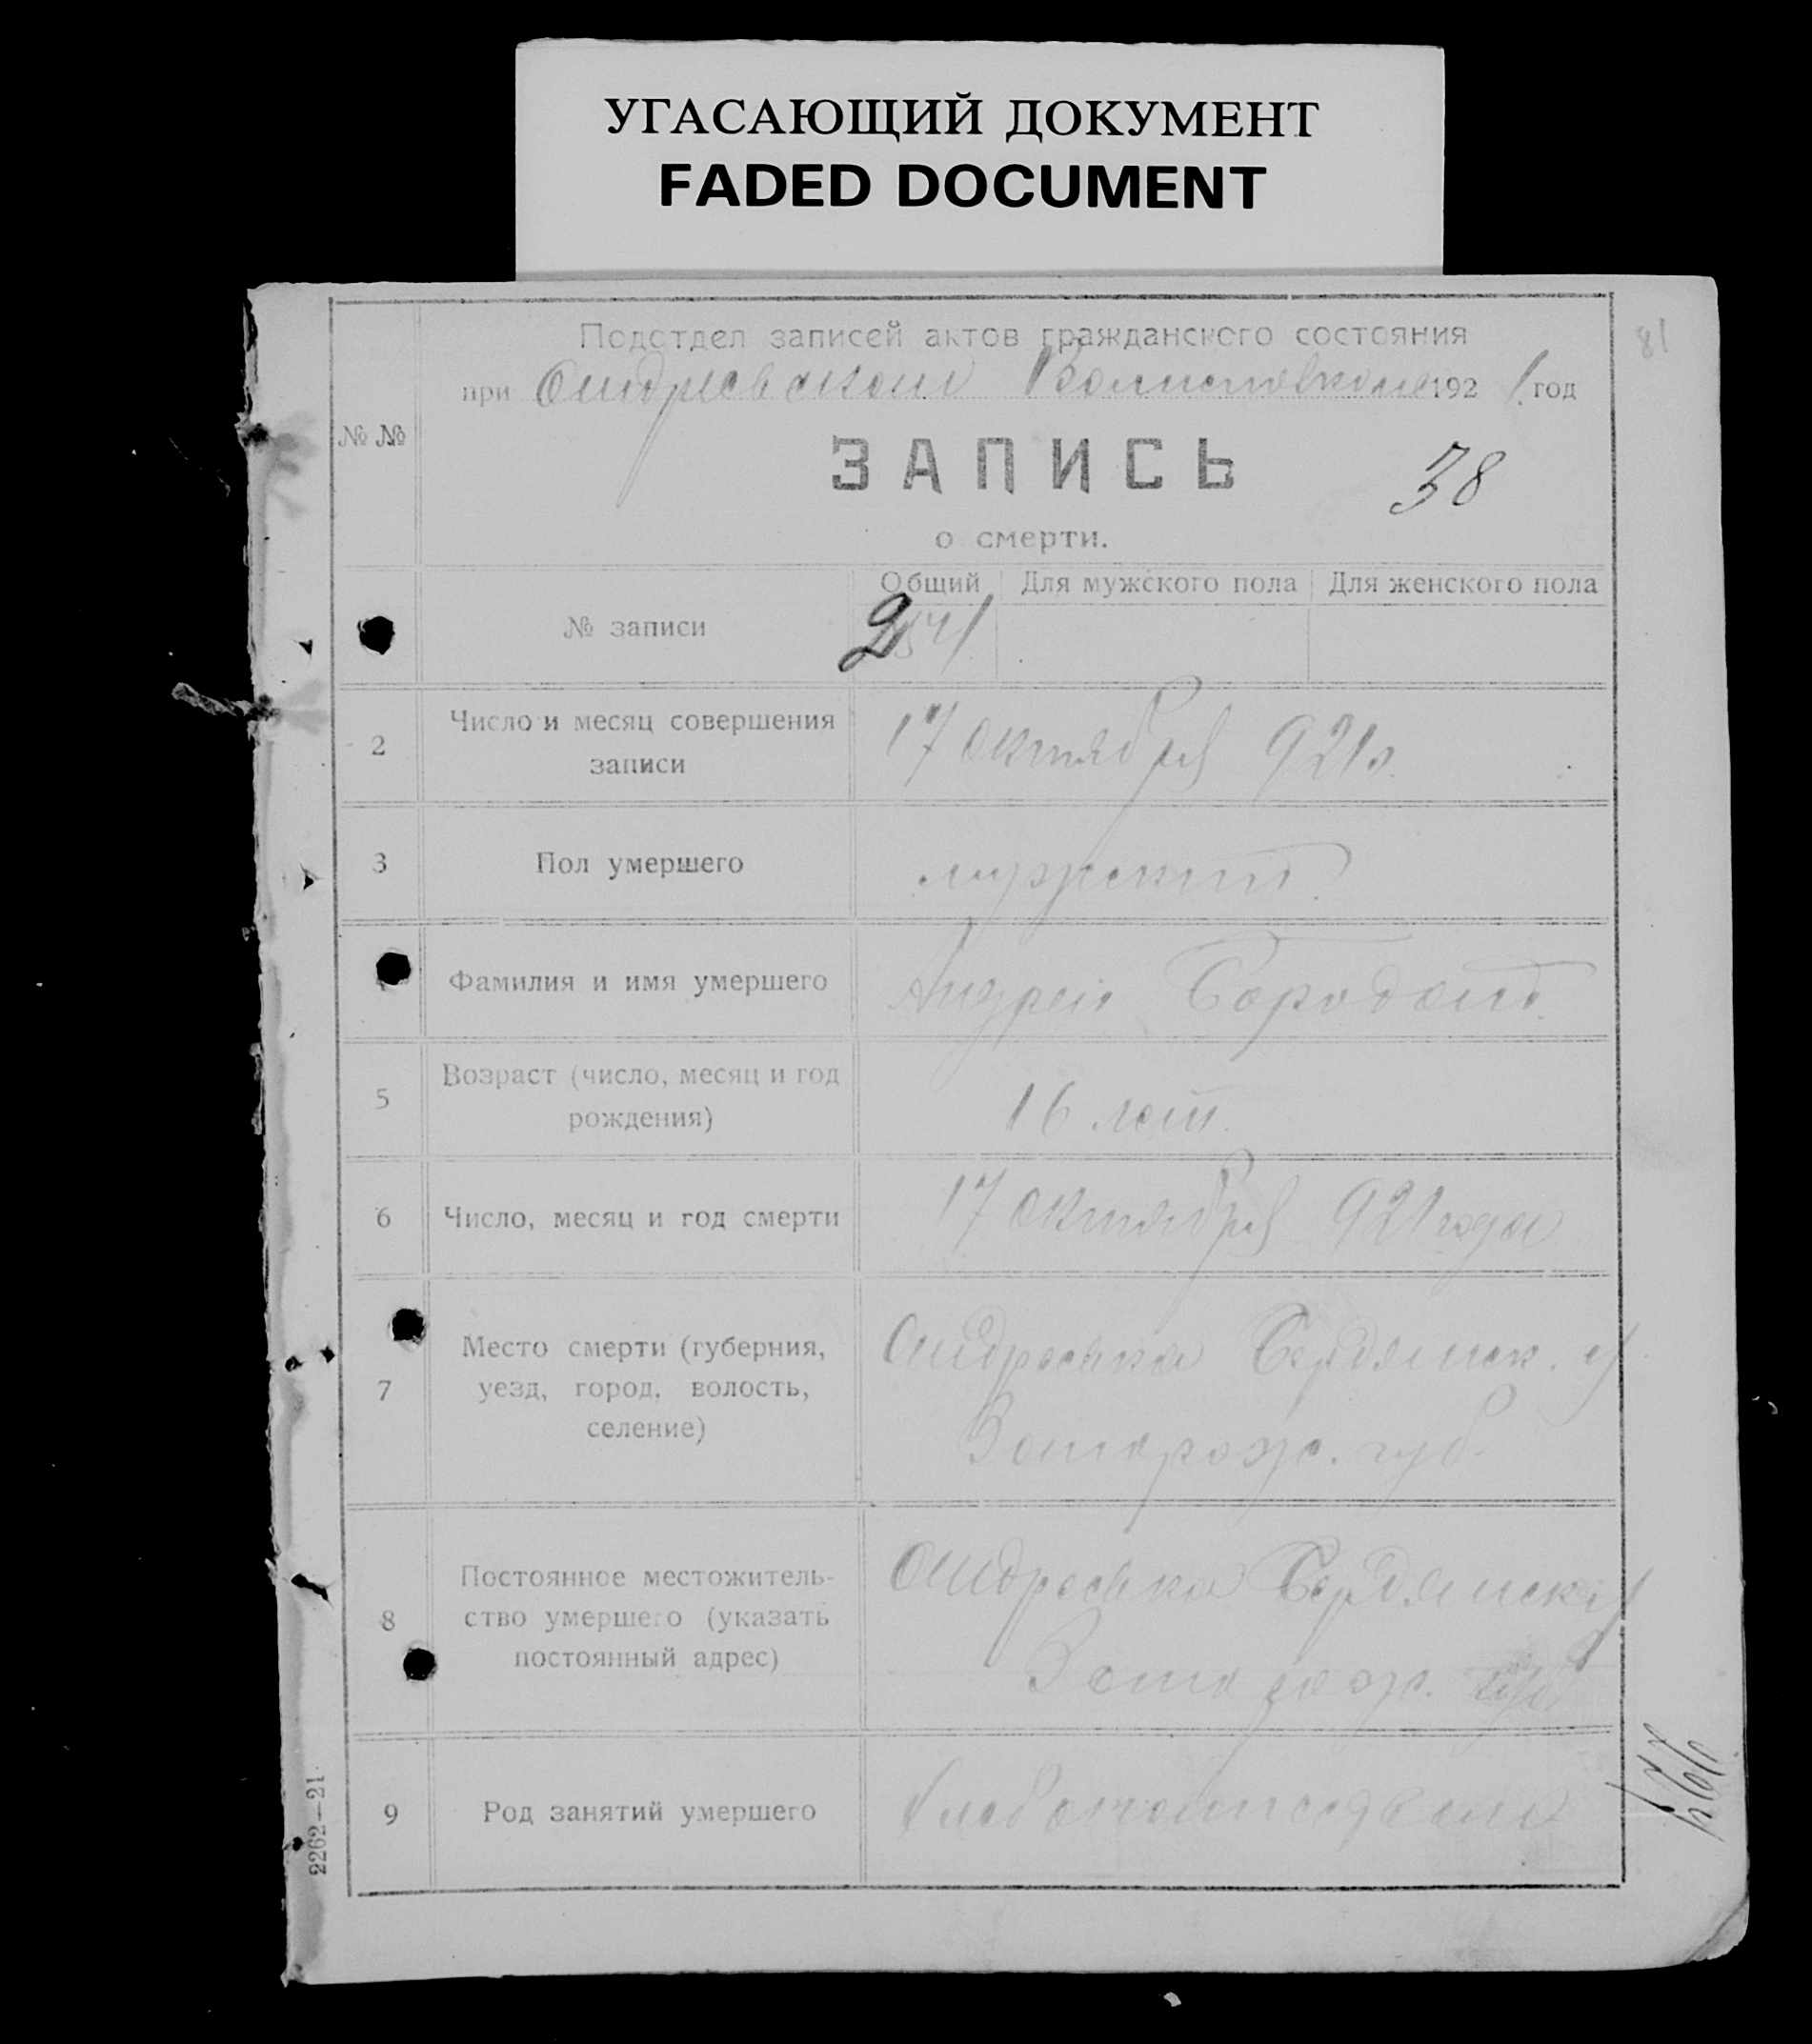 УГАСАЮЩИЙ ДОКУМЕНТ
FADED DOCUMENT
81
Подотдел записей актов гражданского состояния
при Андреевском 1921 год
№ №
ЗАПИСЬ
38
о смерти.
Общий Для мужского пола Для женского пола
№ записи
2 Число и месяц совершения записи 17 октября 921 г.
3 Пол умершего мужский
Фамилия и имя умершего Андрей Бородай
5 Возраст (число, месяц и год рождения) 16 лет
6 Число, месяц и год смерти 17 октября 921 года
7 Место смерти (губерния, уезд, город, волость, селение) Андреевка Бердянск. у
Запорож. губ.
8 Постоянное местожитель-
ство умершего (указать
постоянный адрес) Андреевка Бердянск у
Запорож. губ
9 Род занятий умершего хлебопашество
2262—21